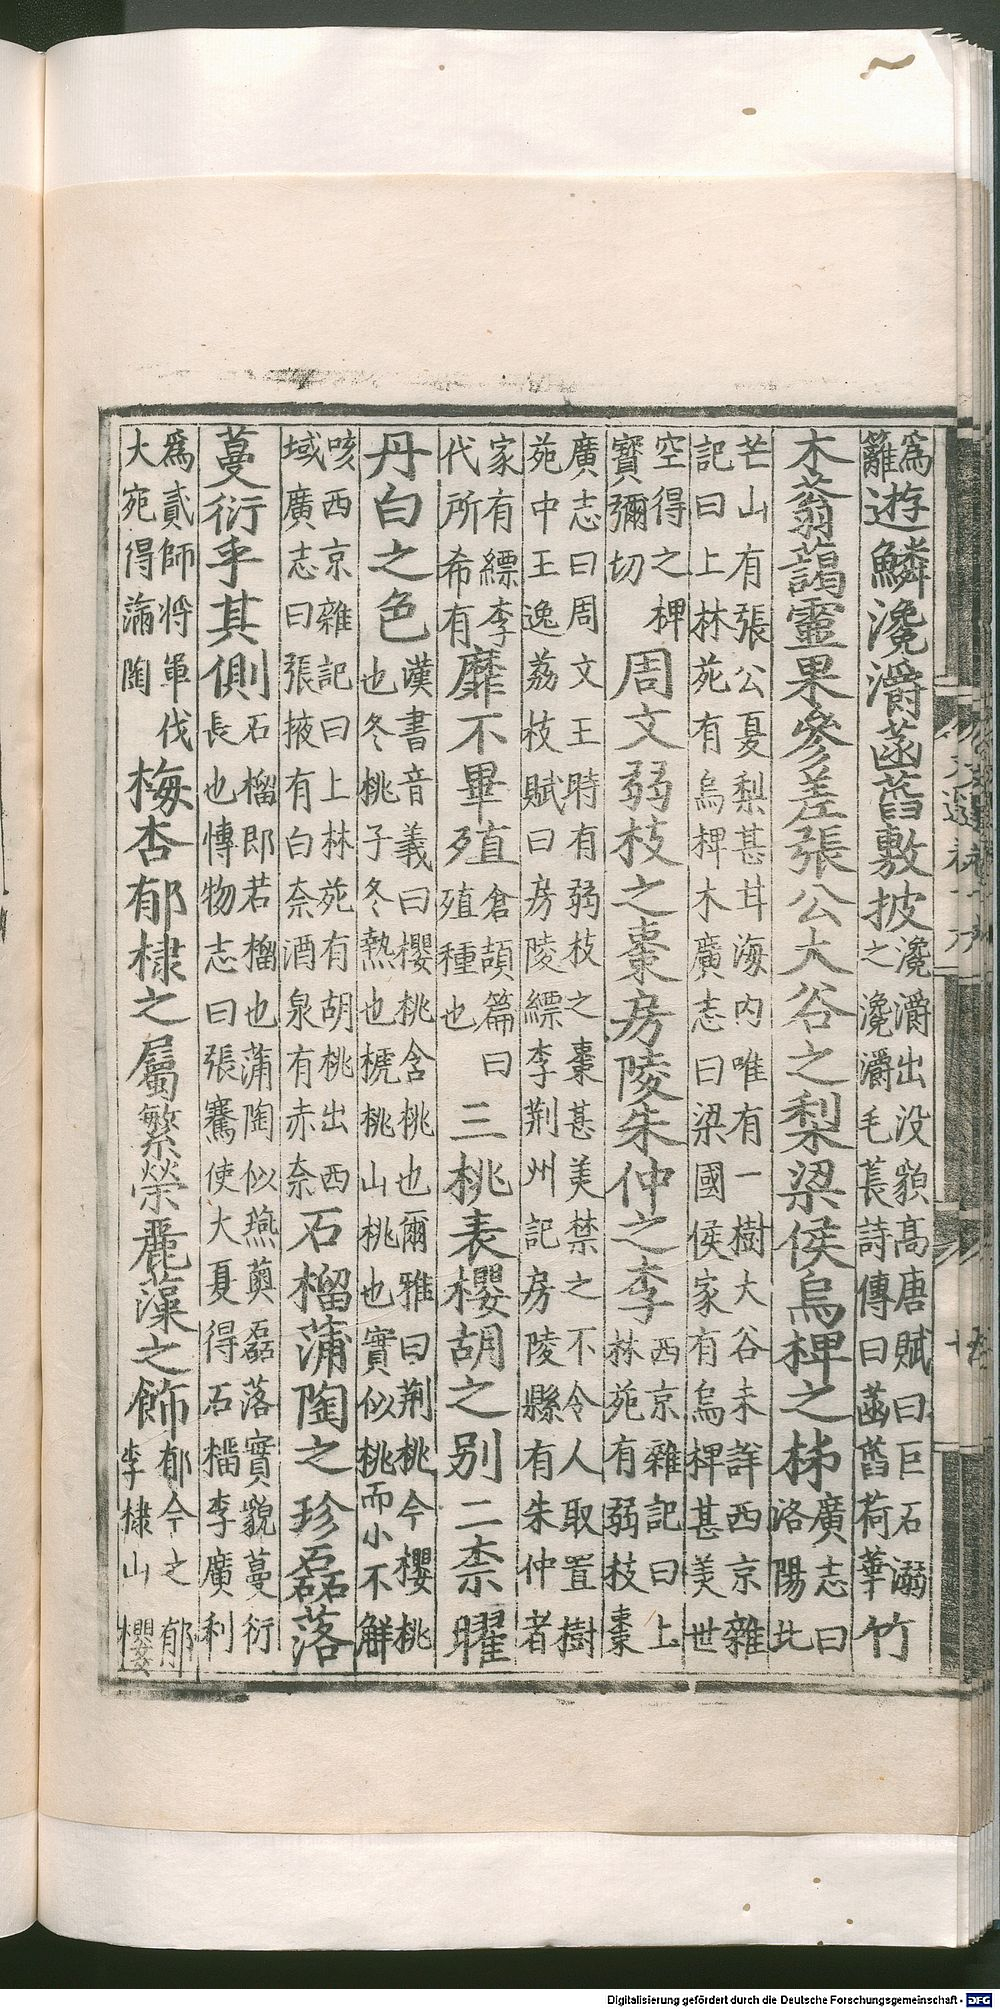 爲籬遊鱗瀺灂菡萏敷披瀺灂出没貌高唐賦曰巨石溺之瀺灂毛萇詩傳曰菡萏荷華竹
木蓊藹靈果參差張公大谷之梨梁侯烏椑之柹廣志曰洛陽北
芒山有張公夏梨甚甘海内唯有一樹大谷未詳西京雜記曰上林苑有烏椑木廣志曰梁國侯家有烏椑甚美世
空得之椑賓彌切周文弱枝之棗房陵朱仲之李西京雜記曰上林苑有弱枝棗
廣志曰周文王時有弱枝之棗甚美禁之不令人取置樹苑中王逸荔枝賦曰房陵縹李荆州記房陵縣有朱仲者
家有縹李代所希有靡不畢殖倉頡篇曰殖種也三桃表櫻胡之别二柰曜
丹白之色漢書音義曰櫻桃含桃也爾雅曰荆桃今櫻桃也冬桃子冬熱也榹桃山桃也實似桃而小不解
咳西京雜記曰上林苑有胡桃出西域廣志曰張掖有白柰酒泉有赤柰石榴蒲陶之珍磊落
蔓衍乎其側石榴即若榴也蒲陶似燕薁磊落實貌蔓衍長也博物志曰張騫使大夏得石榴李廣利
爲貳師將軍伐大宛得蒲陶梅杏郁棣之屬繁榮麗藻之飾郁今之郁李棣山櫻
Digitalisierung gefördert durch die Deutsche Forschungsgemeinschaft - DFG